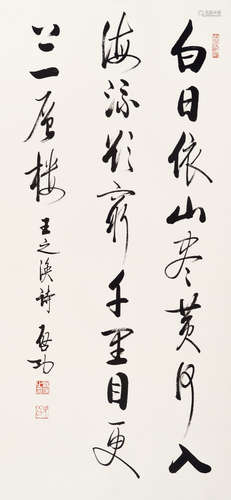 白日依山尽黄河入
海流欲穷千里目更
上一层楼王之涣诗启功